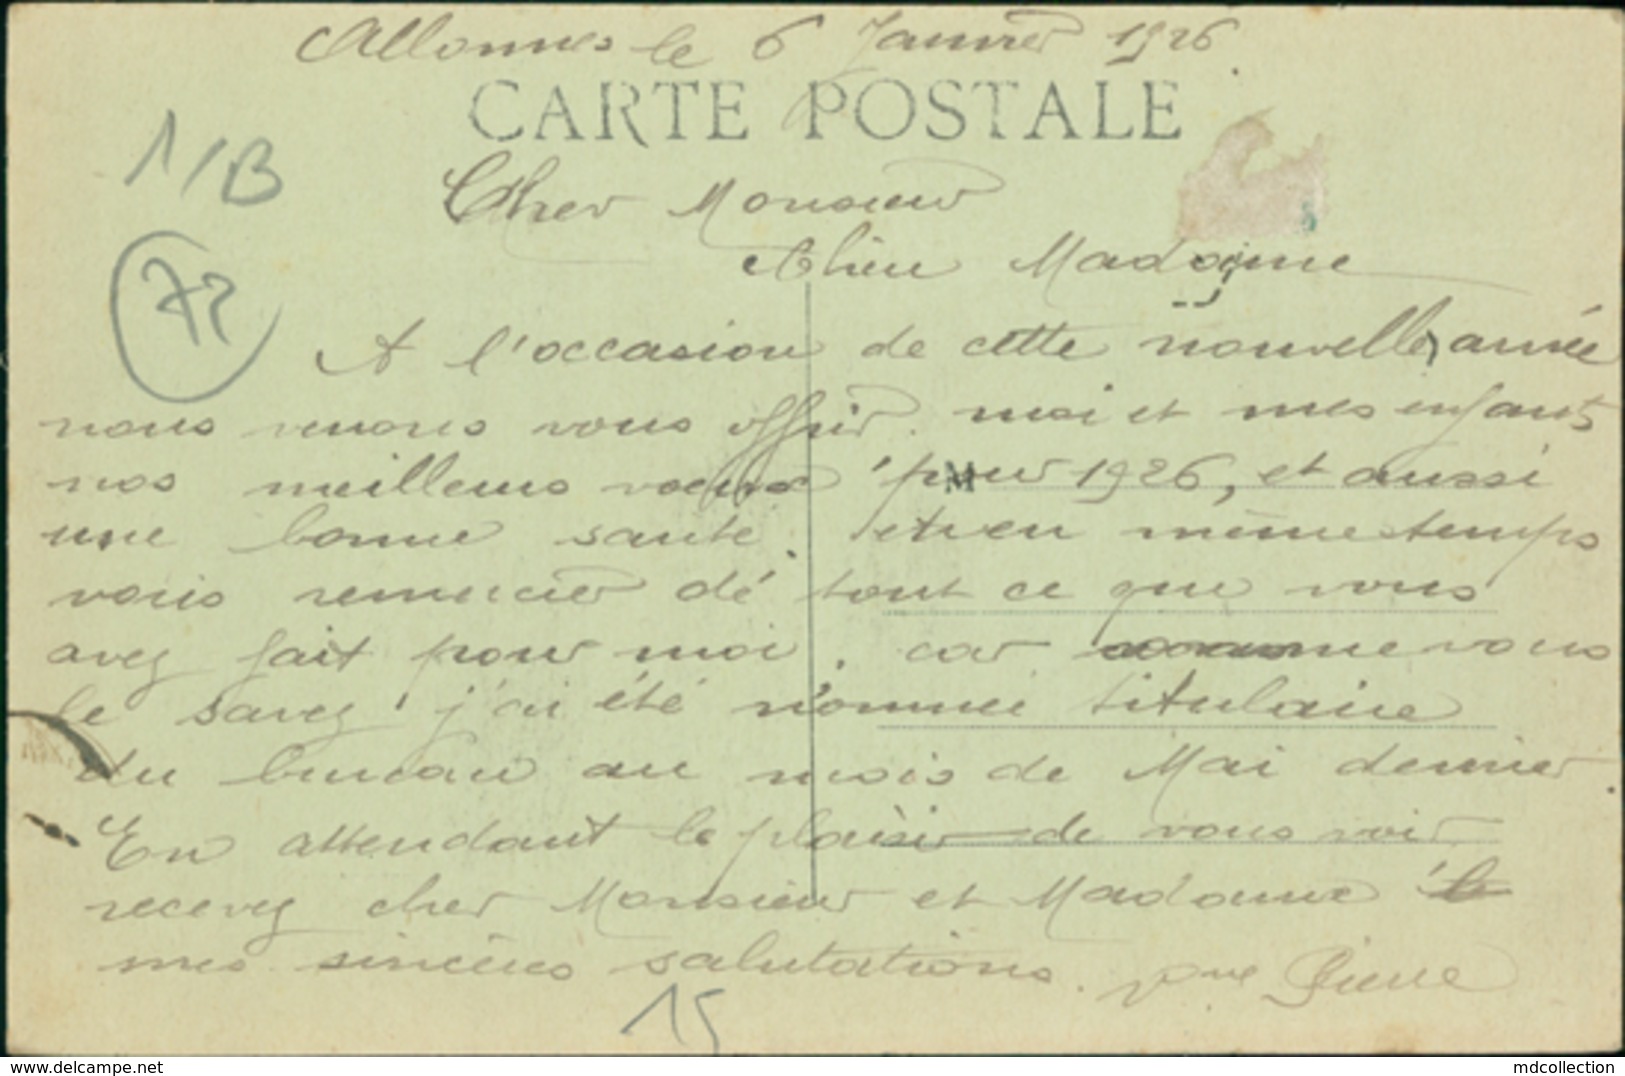 Allonnes le 6 Janvier 1926.
CARTE POSTALE
1/B
Cher Monsieur
Chere Madame
72
A l'occasion de cette nouvelle année
nous venons vous offrir. moi et mes enfants
nos meilleurs voeux pour 1926, et aussi
une bonne santé. et en même temps
vous remercier dé tout ce que vous
avez fait pour moi, car comme vous
le savez j'ai été nommée titulaire
du bureau au mois de Mai dernier.
En attendant le plaisir de vous voir
recevez cher Monsieur et Madame
mes sincères salutations. Vve Pierre
15
delcampe.net
mdcollection